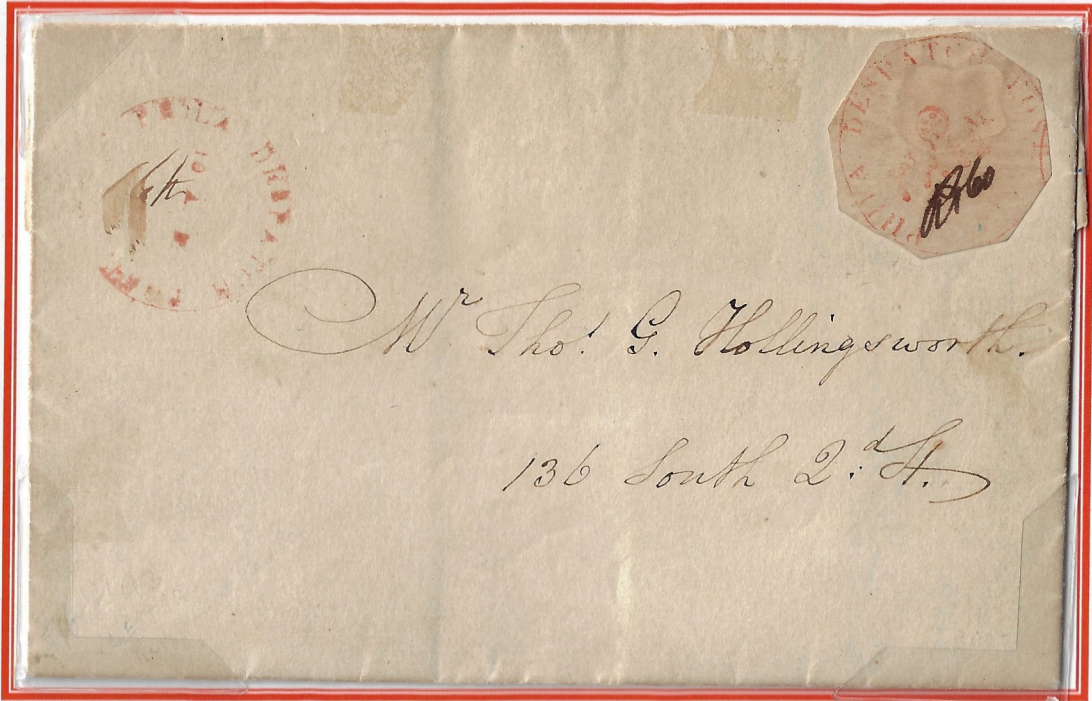 PHILA DESPATCH POST
PHILA DESPATCH POST
Mr. Tho.s G. Hollingsworth.
136 South 2.d St.